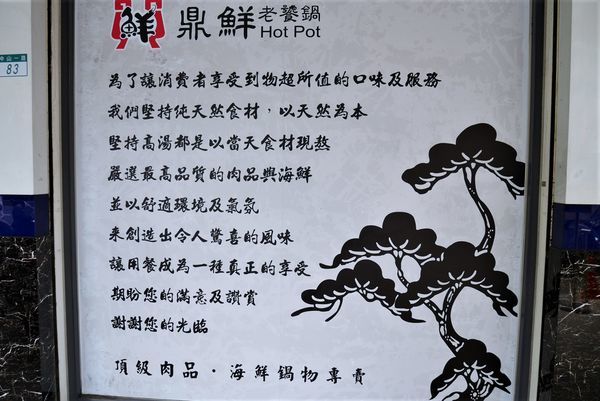 鮮
鼎鮮 老饕鍋
Hot Pot
中山一路
83
為了讓消費者享受到物超所值的口味及服務
我們堅持純天然食材，以天然為本
堅持高湯都是以當天食材現熬
嚴選最高品質的肉品與海鮮
並以舒適環境及氣氛
來創造出令人驚喜的風味
讓用餐成為一種真正的享受
期盼您的滿意及讚賞
謝謝您的光臨
頂級肉品·海鮮鍋物專賣